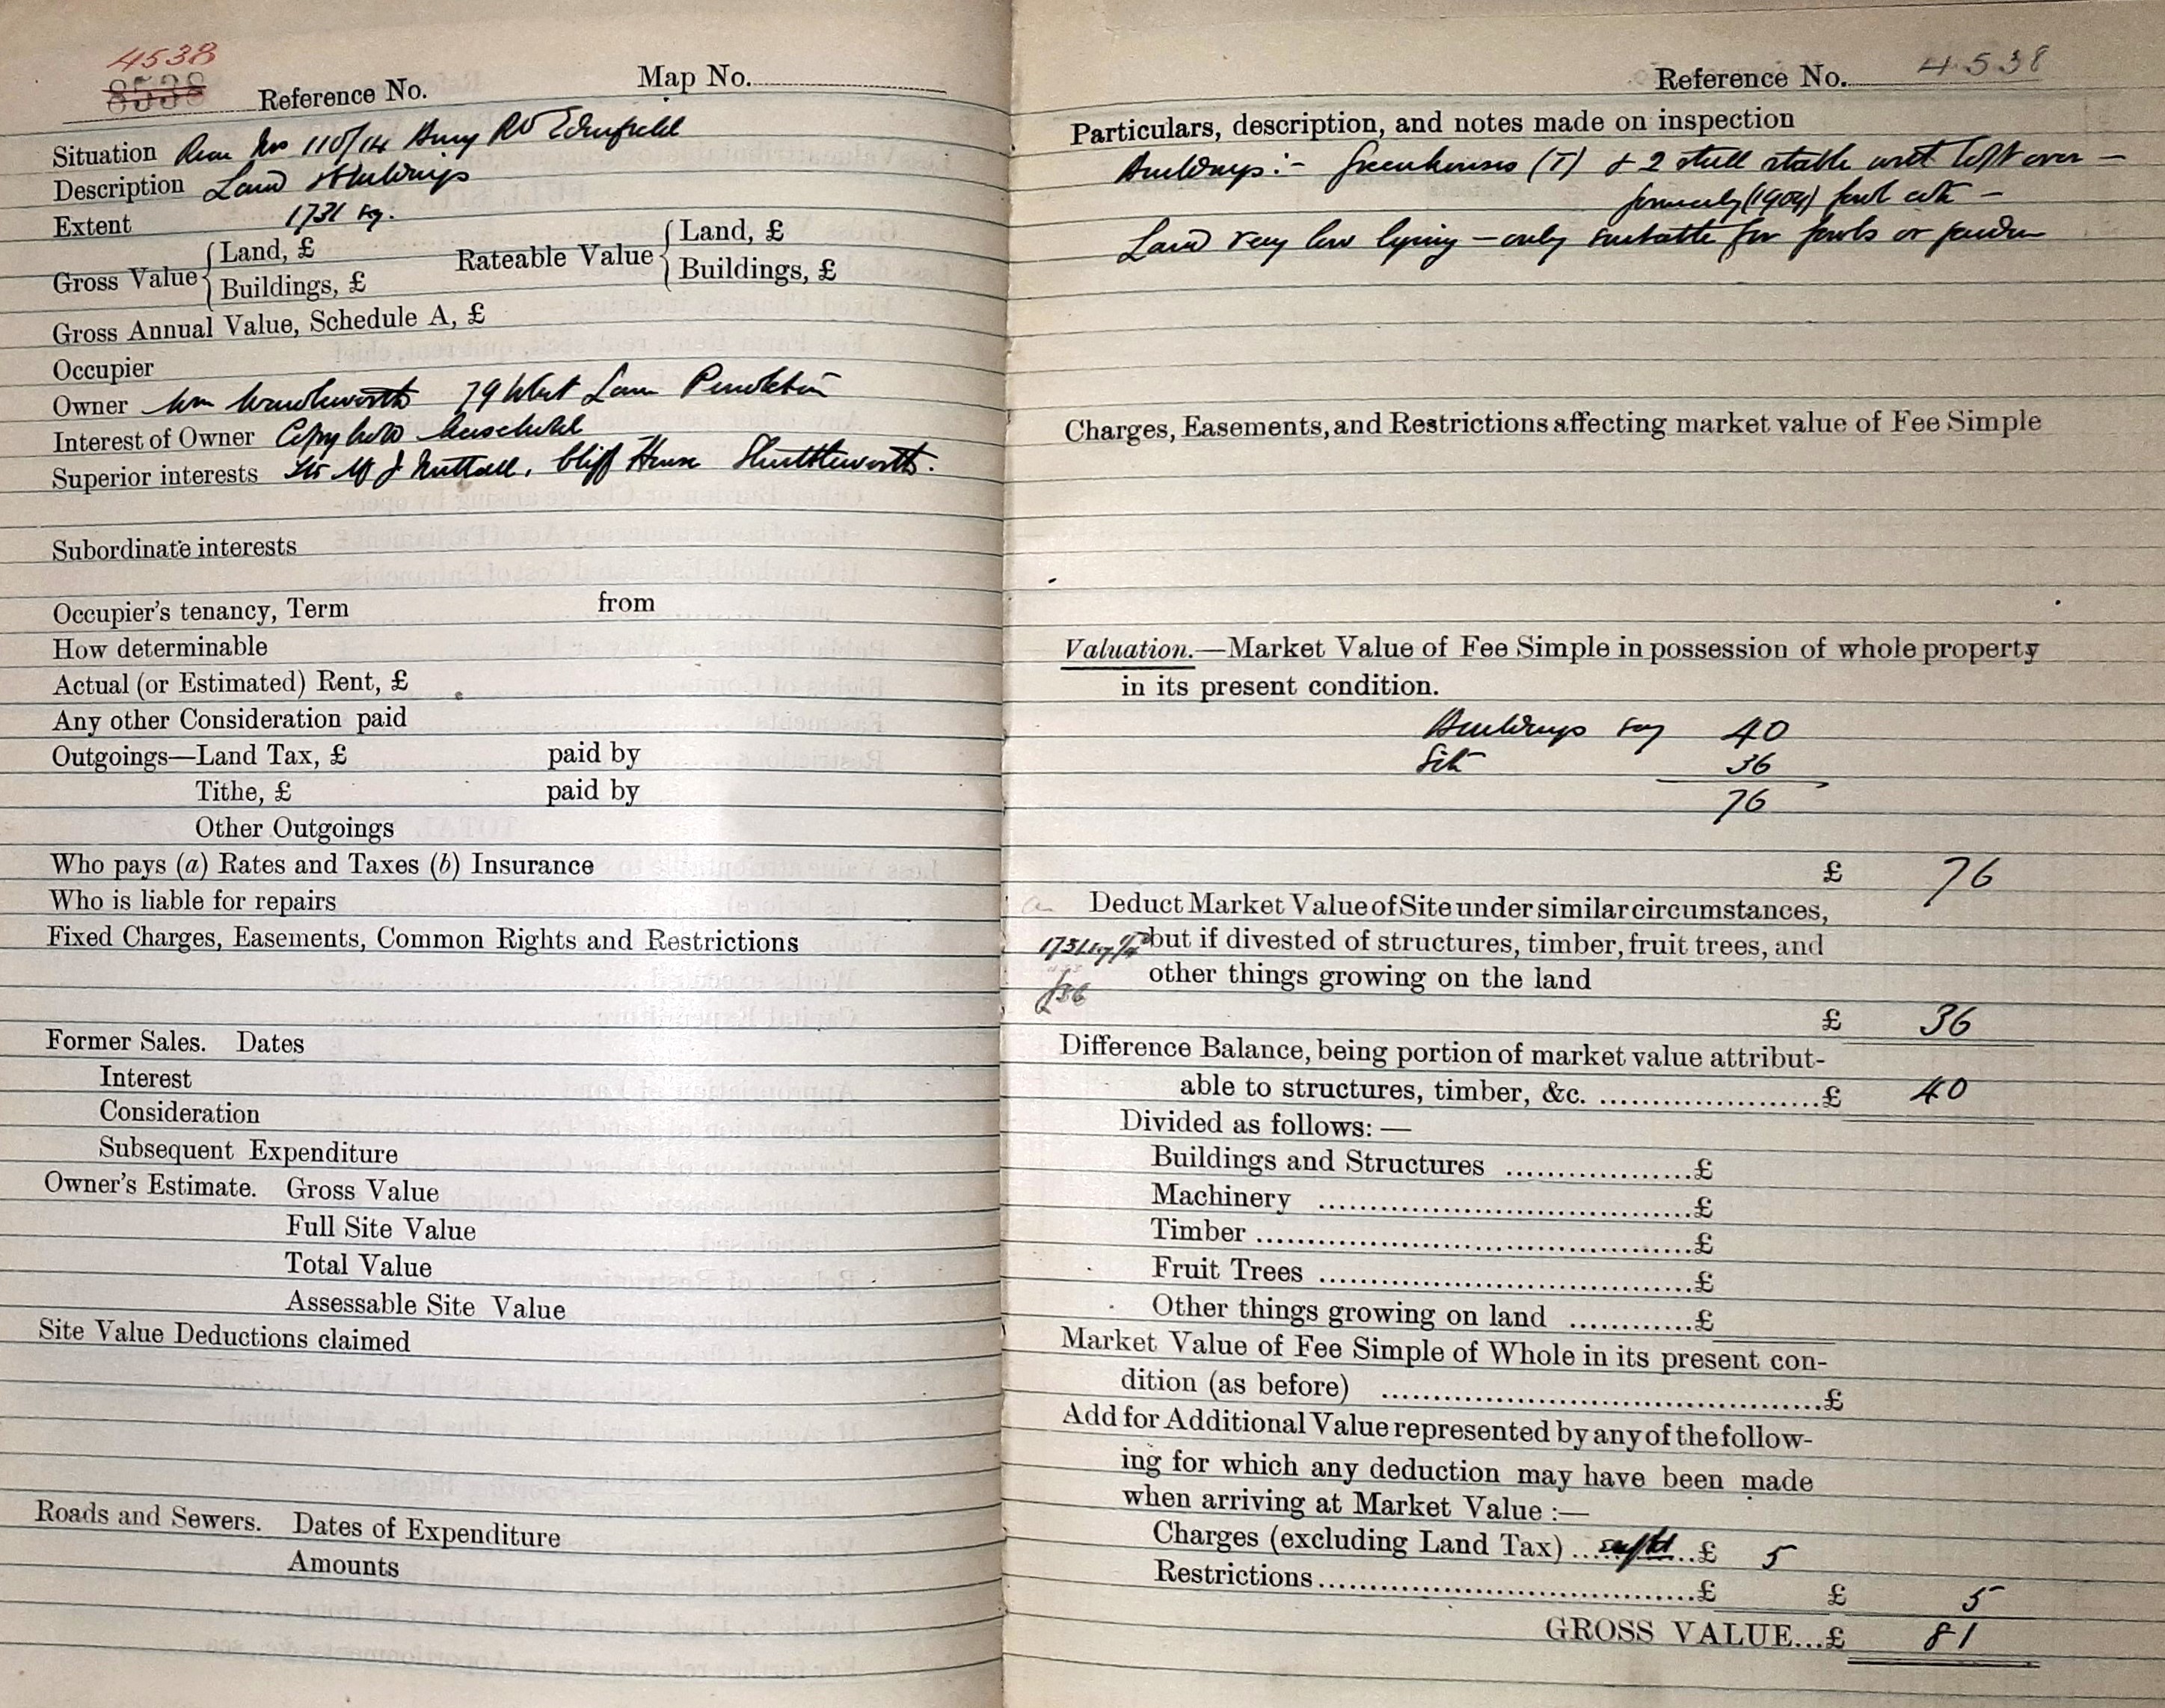 4538
8538 Reference No. Map No.
Situation Rear Nos 110/14 Bury Rd Edenfield
Description Land & Buildings
Extent 1731 sy.
Gross Value { Land, £
Buildings, £
Rateable Value { Land, £
Buildings, £
Gross Annual Value, Schedule A, £
Occupier
Owner Wm 79 West Lane Pendleton
Interest of Owner Copyhold
Superior interests Nuttall, Cliff House Shuttleworth.
Subordinate interests
Occupier's tenancy, Term from
How determinable
Actual (or Estimated) Rent, £
Any other Consideration paid
Outgoings—Land Tax, £ paid by
Tithe, £ paid by
Other Outgoings
Who pays (a) Rates and Taxes (b) Insurance
Who is liable for repairs
Fixed Charges, Easements, Common Rights and Restrictions
Former Sales. Dates
Interest
Consideration
Subsequent Expenditure
Owner's Estimate. Gross Value
Full Site Value
Total Value
Assessable Site Value
Site Value Deductions claimed
Roads and Sewers. Dates of Expenditure
Amounts
Reference No. 4538
Particulars, description, and notes made on inspection
Buildings:- Greenhouses (T) & 2 stall stable with loft over —
formerly (1909) fowl cote —
Land very low lying — only suitable for fowls or garden
Charges, Easements, and Restrictions affecting market value of Fee Simple
Valuation.—Market Value of Fee Simple in possession of whole property
in its present condition.
Buildings say 40
Site 36
76
£ 76
Deduct Market Value of Site under similar circumstances,
1731 sy but if divested of structures, timber, fruit trees, and
other things growing on the land
£36
£ 36
Difference Balance, being portion of market value attribut-
able to structures, timber, &c. £ 40
Divided as follows: —
Buildings and Structures £
Machinery £
Timber £
Fruit Trees £
Other things growing on land £
Market Value of Fee Simple of Whole in its present con-
dition (as before) £
Add for Additional Value represented by any of the follow-
ing for which any deduction may have been made
when arriving at Market Value :—
Charges (excluding Land Tax) £ 5
Restrictions £ £ 5
GROSS VALUE...£ 81